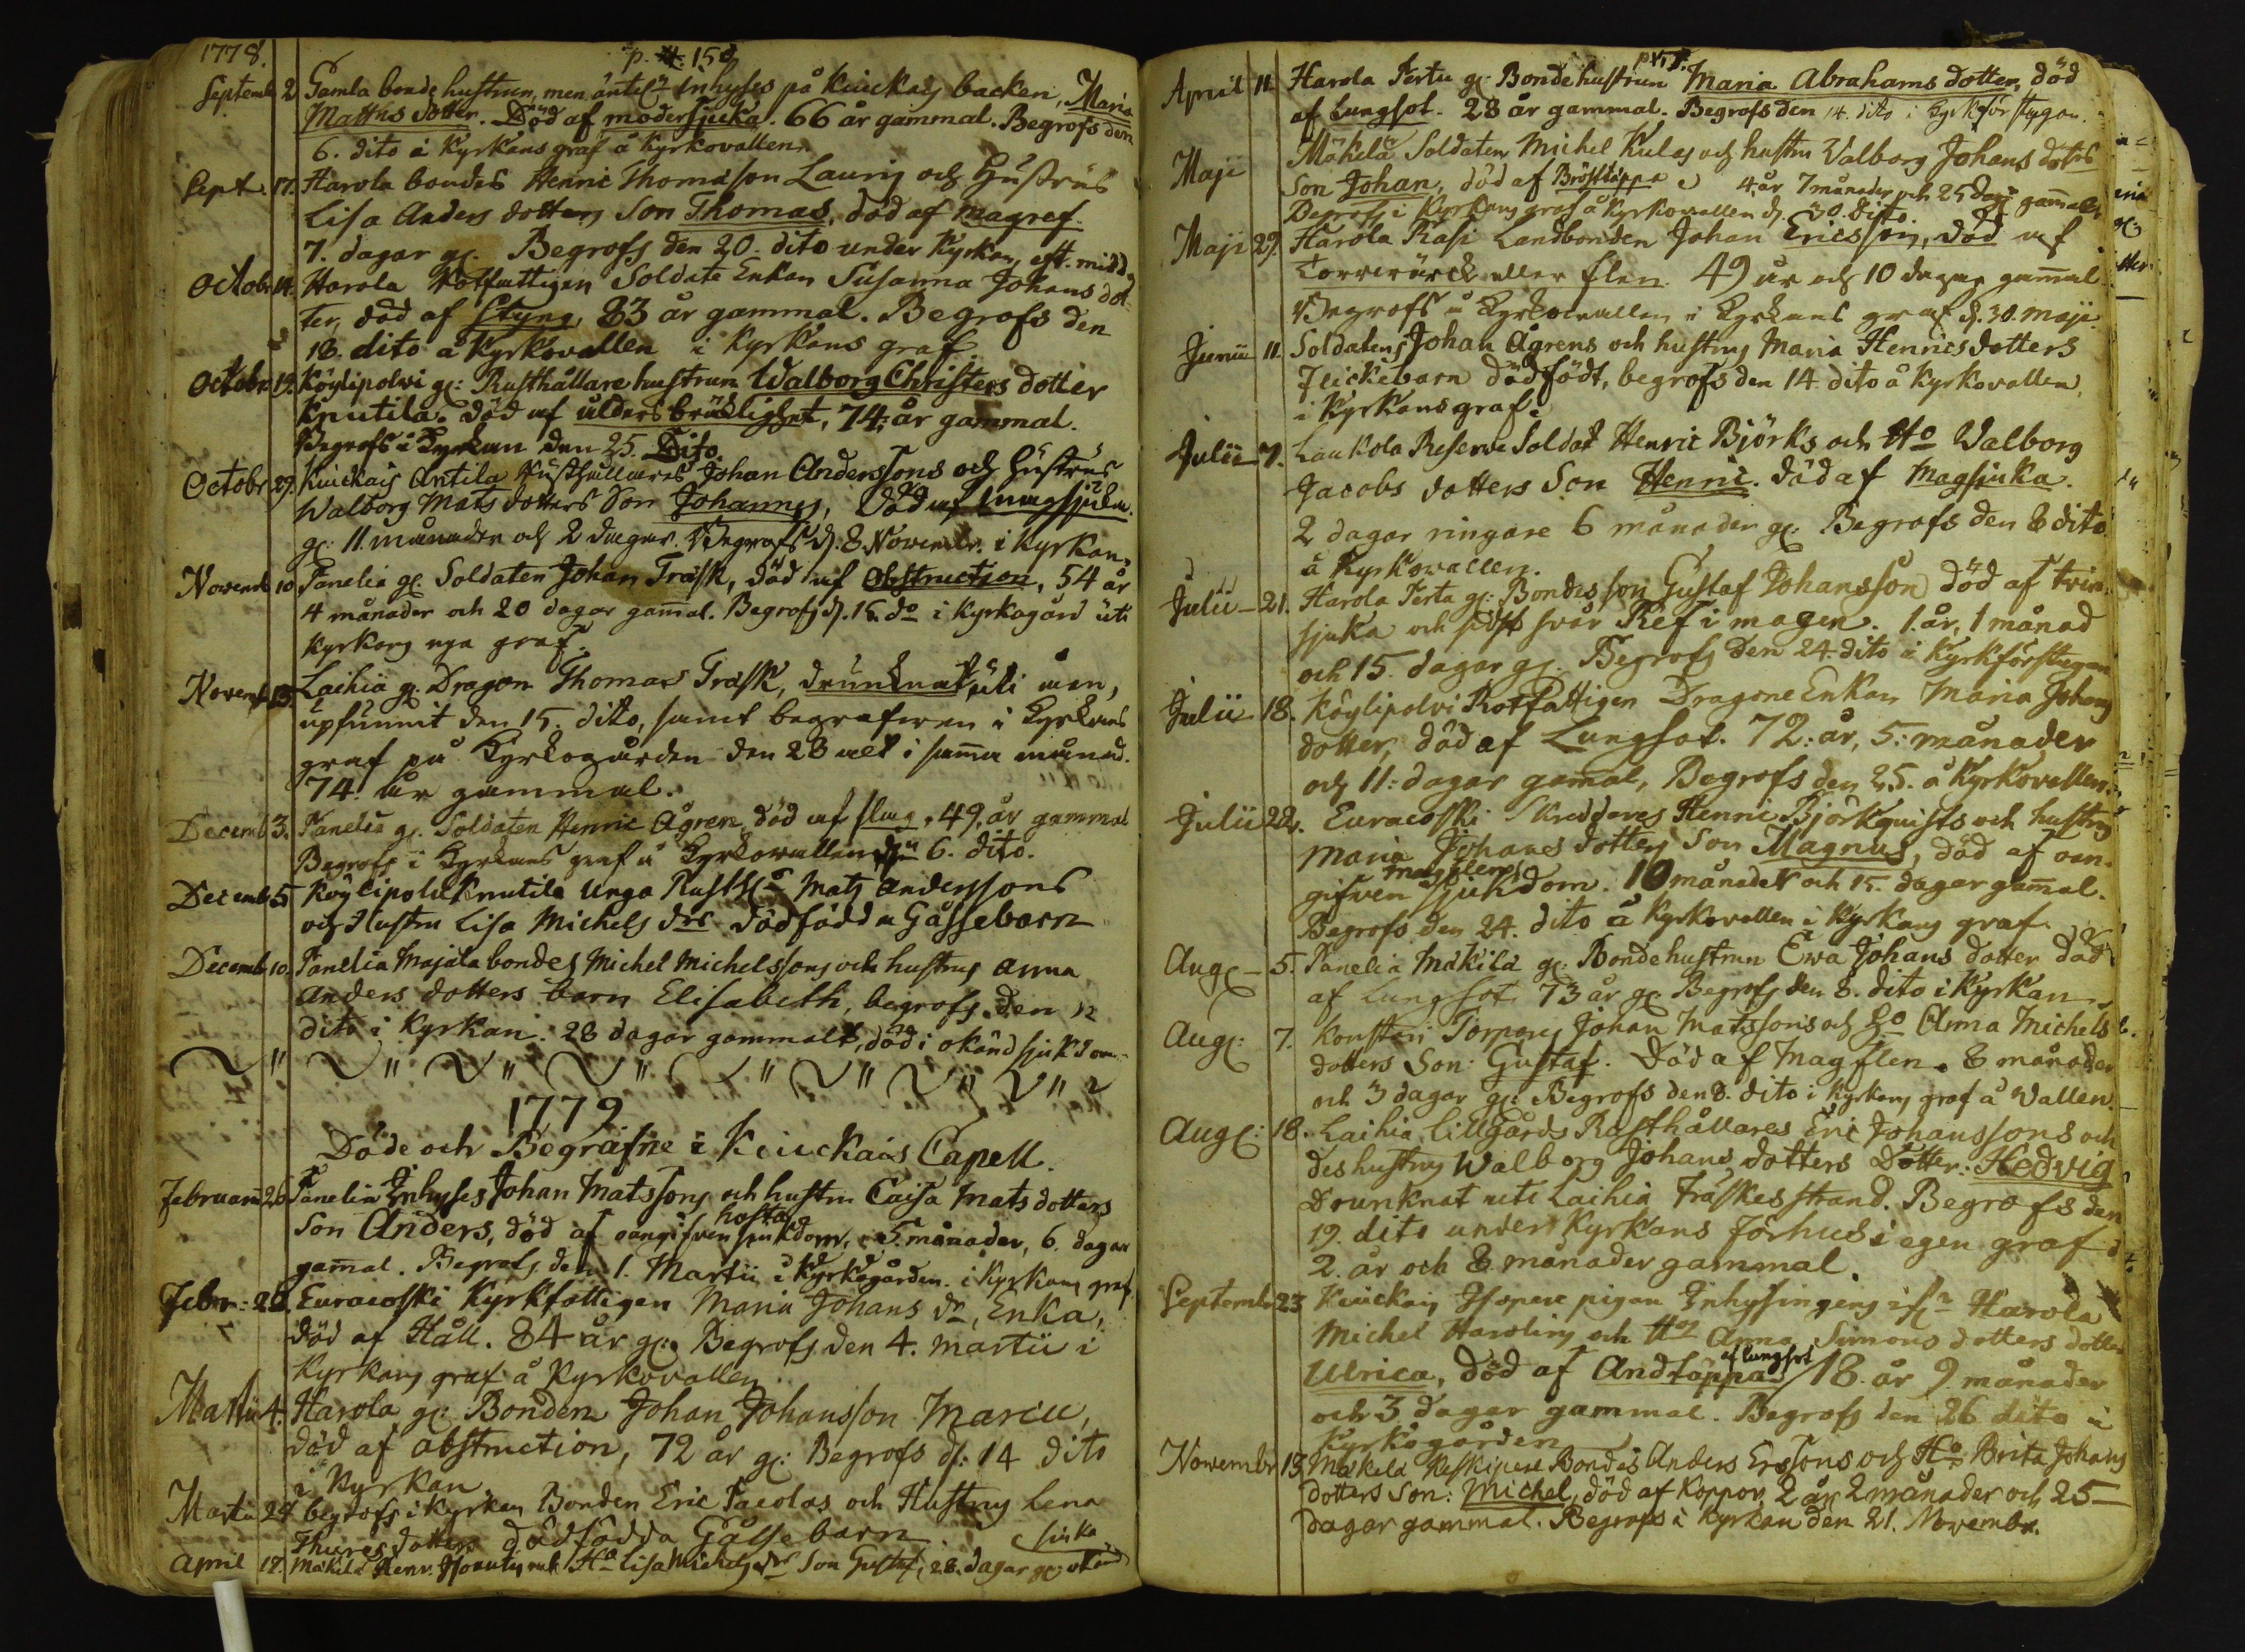 1778.
p. 150
Septemb 2 Gamla bonde hustrun, men äntel. Inhyses på Kiuckais backen, Maria
Matths dotter. Död af modersjuka. 66 år gammal. Begrofs den
6. dito i Kyrkans graf å Kyrkovallen.
Sept. 17. Harola bondes Henric Thomasson Lauris och Hustrus
Lisa Anders dotters Son Thomas, död af magref.
7. dagar g: Begrofs den 20. dito under Kyrkan, eft. midd.
Octobr 14. Harola Rotfattigen Soldate Enkan Susanna Johans dot-
ter, död af Styng, 83 år gammal. Begrofs den
18. dito å Kyrkovallen i Kyrkans graf
Octobr. 19. Köylipolvi g: Rusthållare hustrun Walborg Christers dotter
Knutila. död af ålders bräcklighet, 74: år gammal.
Begrofs i Kyrkan den 25. Dito.
Octobr. 29. Kiuckais Antila Rusthållares Johan Anderssons och Hustrus
Walborg Mats dotters Son Johannes, död af magsjuka.
g: 11. månader och 2 dagar. Begrofs d. 8. Novembr. i Kyrkan.
Novemb 10 Panelia g: Soldaten Johan Träsk, död af Obstruction, 54 år
4 månader och 20 dagar gamal. Begrofs d. 15. do i Kyrkogård uti
Kyrkans nya graf.
Novemb 13. Laihia g: Dragon Thomas Träsk, drunknat uti åen,
upfunnit den 15. dito, samt begrafven i Kyrkans
graf på Kyrkogården den 28 i sama månad.
74. år gammal.
Decemb 3. Panelia g: Soldaten Henric Ågren, död af slag, 49. år gammal
Begrofs i Kyrkans graf å Kyrkovallen 6. dito.
Decemb 5 Köylipolvi Knutila Unga Rusth. Mats Anderssons
och Hustru Lisa Michels drs dödfödda Gåssebarn
Decemb 10. Panelia Majala bondes Michel Michelssons och hustrus Anna
Anders dotters barn Elisabeth, begrofs den 12
dito i Kyrkan. 28 dagar gammalt, död i okänd sjukdom.
1779
Döde och Begrafne i Kiuckais Capell.
Februarii 26 Panelia Inhyses Johan Matssons och hustru Caisa Mats dotters
Son Anders, död af oangifven hosta sjukdom, 5. månader, 6. dagar
gamal. Begrofs den 1. Martii å Kyrkogården i Kyrkans graf.
Febr: 28. Euracoski Kyrkfattigen Maria Johans dr, Enka,
död af Håll. 84 år g: Begrofs den 4. Martii i
Kyrkans graf å Kyrkovallen.
Martii 4. Harola g: Bonden Johan Johansson Marcu,
död af obstruction, 72 år g: Begrofs d: 14 dito
i Kyrkan.
Martii 24 begrofs i Kyrkan Bonden Eric Pacolas och Hustrus Lena
Thures dotters dödfödda Gåsse barn
April 17. Mäkilä Henr. och Ho Lisa Michels drs Son Gustaf, 28. dagar g: okänd
sjuka
April 11 Harola Pertu g: Bondehustrun Maria Abrahams dotter, död
af Lungsot. 28 år gammal. Begrofs den 14. dito i Kyrkförstugan.
Maji Mäkelä Soldaten Michel Kulas och hustru Valborg Johans dotters
Son Johan, död af Brösttäppa 4 år 7 månader och 25 dagar gamal.
Begrofs i Kyrkans graf å Kyrkovallen d. 30. dito.
Maji 29. Harola Rasi Landbonden Johan Ericsson, död af
Torrwärck eller flen 49 år och 10 dagar gamal
Begrofs å Kyrkovallen i Kyrkans graf d. 30. Maji.
Junii 11. Soldatens Johan Ågrens och hustrus Maria Henricsdotters
flickebarn dödfödt, begrofs den 14. dito å Kyrkovallen,
i Kyrkans graf.
Julii 7. Laukola Reserve Soldat Henric Björks och Ho Walborg
Jacobs dotters Son Henric. död af Magsjuka.
2 dagar ringare 6 månader g: Begrofs den 8 dito
å Kyrkovallen.
Julii 21. Harola Perta g: Bondes son Gustaf Johansson död af trin
sjuka och sidst svår Ref i magen. 1. år, 1 månad
och 15. dagar g: Begrofs den 24. dito i Kyrkförstugan
Julii 18. Köylipolvi Rotfattigen Dragone Enkan Maria Johans
dotter, död af Lungsot. 72: år, 5: månader
och 11: dagar gamal, Begrofs den 25. å Kyrkovallen.
Julii 22. Euracoski Skreddares Henric Björkquists och hustrus
Maria Johans dotters Son Magnus, död af oan-
gifven magflens sjukdom. 10 månader och 15. dagar gamal.
Begrofs den 24. dito å Kyrkovallen i Kyrkans graf.
Aug: 5. Panelia Mäkilä g: Bondehustrun Ewa Johans dotter död
af Lungsot 73 år g: Begrofs den 8. dito i Kyrkan
Aug: 7. Konstari Torpares Johan Matssons och Ho Anna Michels
dotters Son: Gustaf. Död af Magflen. 8 månader
och 3 dagar g: Begrofs den 8. dito i Kyrkans graf å Vallen.
Aug: 18. Laihia Lillgårds Rusthållares Eric Johanssons och
des hustrus Walborg Johans dotters Dotter: Hedvig
Drunknat uti Laihia Träskes strand. Begrofs den
19. dito under Kyrkans förhus i egen graf
2. år och 8 månader gammal.
Septemb 23 Kiuckais pigan Inhysingens Harola
Michel Harolins och Hos Anna Simons dotters dotter
Ulrica, död af Andtäppa af lungsot 18. år 9 månader
och 3 dagar gammal. Begrofs den 26 dito i
Kyrkogården
Novembr 19. Mäkelä Keskipere Bondes Anders Erssons och Ho Brita Johans
dotters Son: Michel, död af Koppor, 2 år 2 månader och 25
dagar gammal. Begrofs i Kyrkan den 21. Novembr.